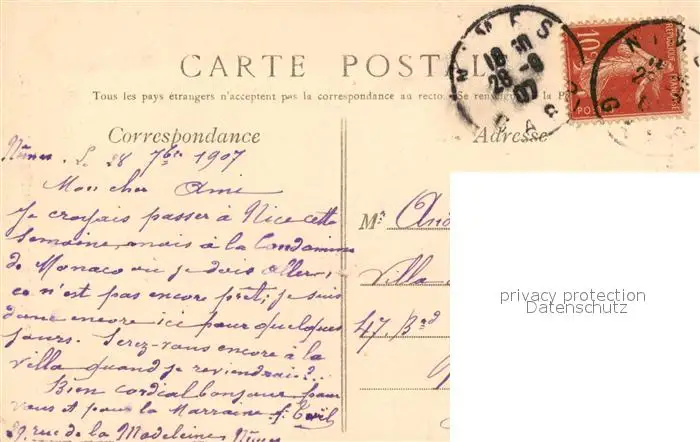 CARTE POSTALE
Tous les pays étrangers n'acceptent pas la correspondance au recto. Se renseigner à la P
Correspondance
Adresse
NIMES
18 30
28 -9
07
GARD
10c
REPUBLIQUE
POSTES
Nîmes. Le 28 7bre 1907
Mon cher Ami
Je croyais passer à Nice cette
semaine, mais à la Condamine
de Monaco où je dois aller,
ce n'est pas encore prêt; je suis
donc encore ici pour quelques
jours. Serez-vous encore à la
villa quand je reviendrai?..
Bien cordial bonjour pour
vous et pour la Marraine
29, rue de la Madeleine Nîmes
Mr. And
Villa
47, Bd
privacy protection
Datenschutz